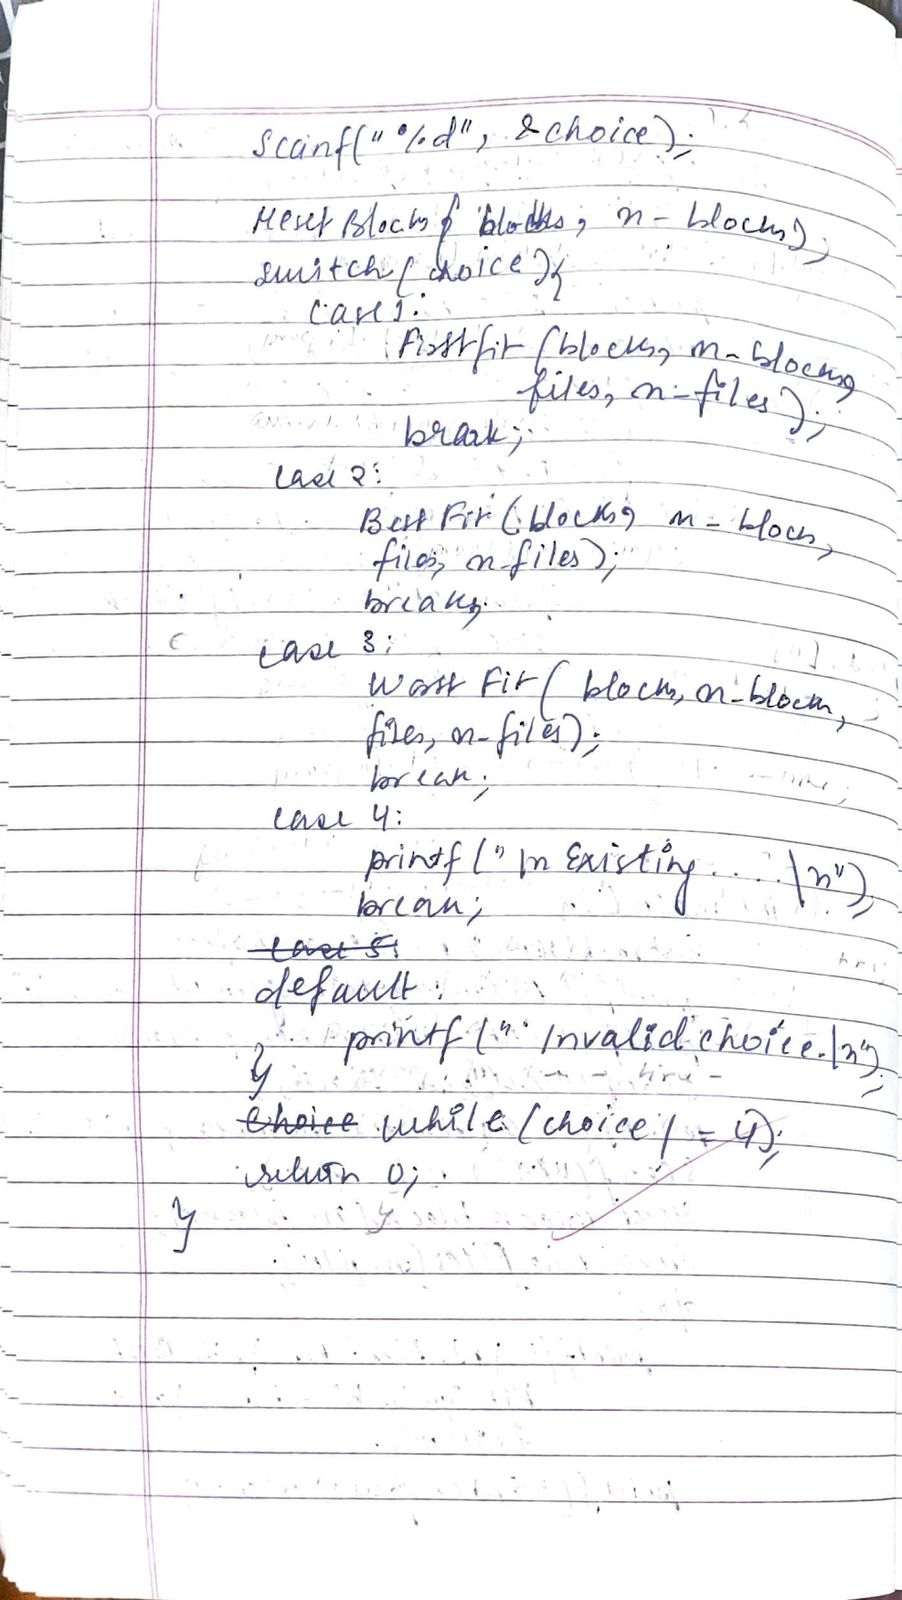 scanf("%d", &choice);
Reset Blocks( blocks, n-blocks);
switch(choice){
case 1:
Firstfit (blocks, n-blocks,
files, n-files);
break;
case 2:
Best Fit (blocks, n-blocks,
files, n-files);
break;
case 3:
Worst Fit( blocks, n-blocks,
files, n-files);
break;
case 4:
printf("\n Existing .... \n");
break;
case 5:
default:
printf(" Invalid choice.\n");
}
Choice while (choice != 4);
return 0;
}